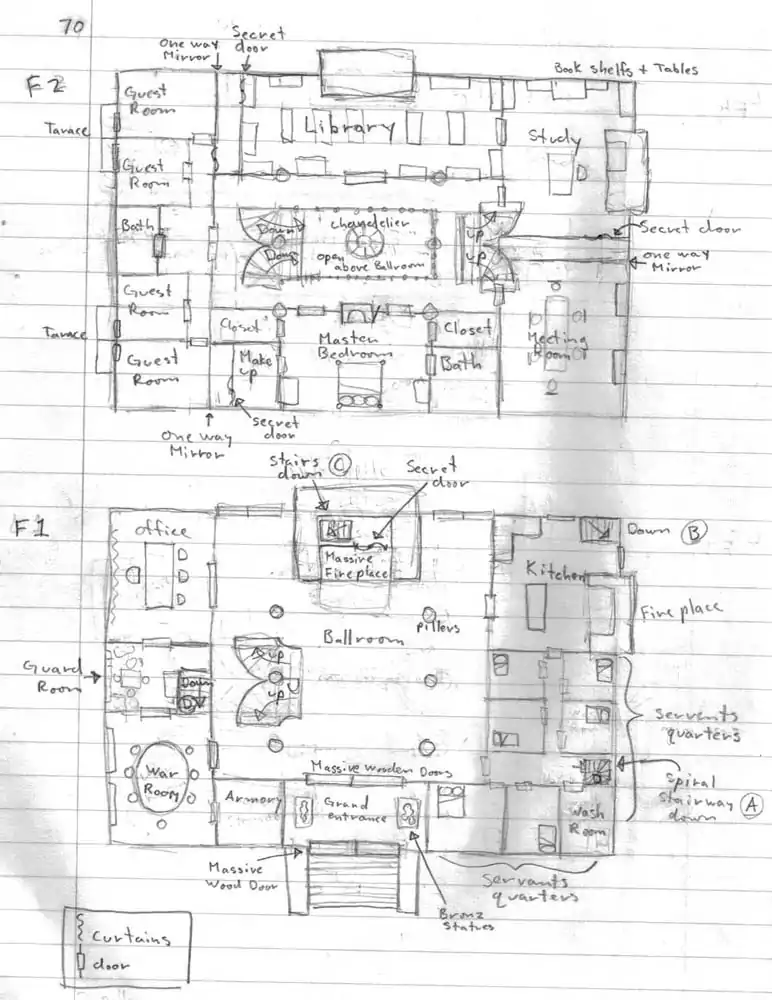 70
One way
Mirror
Secret
door
F2
Book shelfs + Tables
Guest
Room
Tarace
Library
Study
Guest
Room
Bath
Down
Down
chandelier
open
above Ballroom
up
up
Secret door
one way
Mirror
Guest
Room
Tarace
Closet
Master
Bedroom
Closet
Meeting
Room
Guest
Room
Make
up
Bath
One way
Mirror
Secret
door
Stairs
down C
Secret
door
F1
office
Down B
Massive
Fireplace
Kitchen
Fire place
Pillers
Ballroom
Guard
Room
Down
up
up
Servants
quarters
War
Room
Massive Wooden Doors
Armory
Grand
entrance
Wash
Room
Spiral
Stairway A
down
Massive
Wood Door
Servants
quarters
Bronz
Statues
Curtains
door